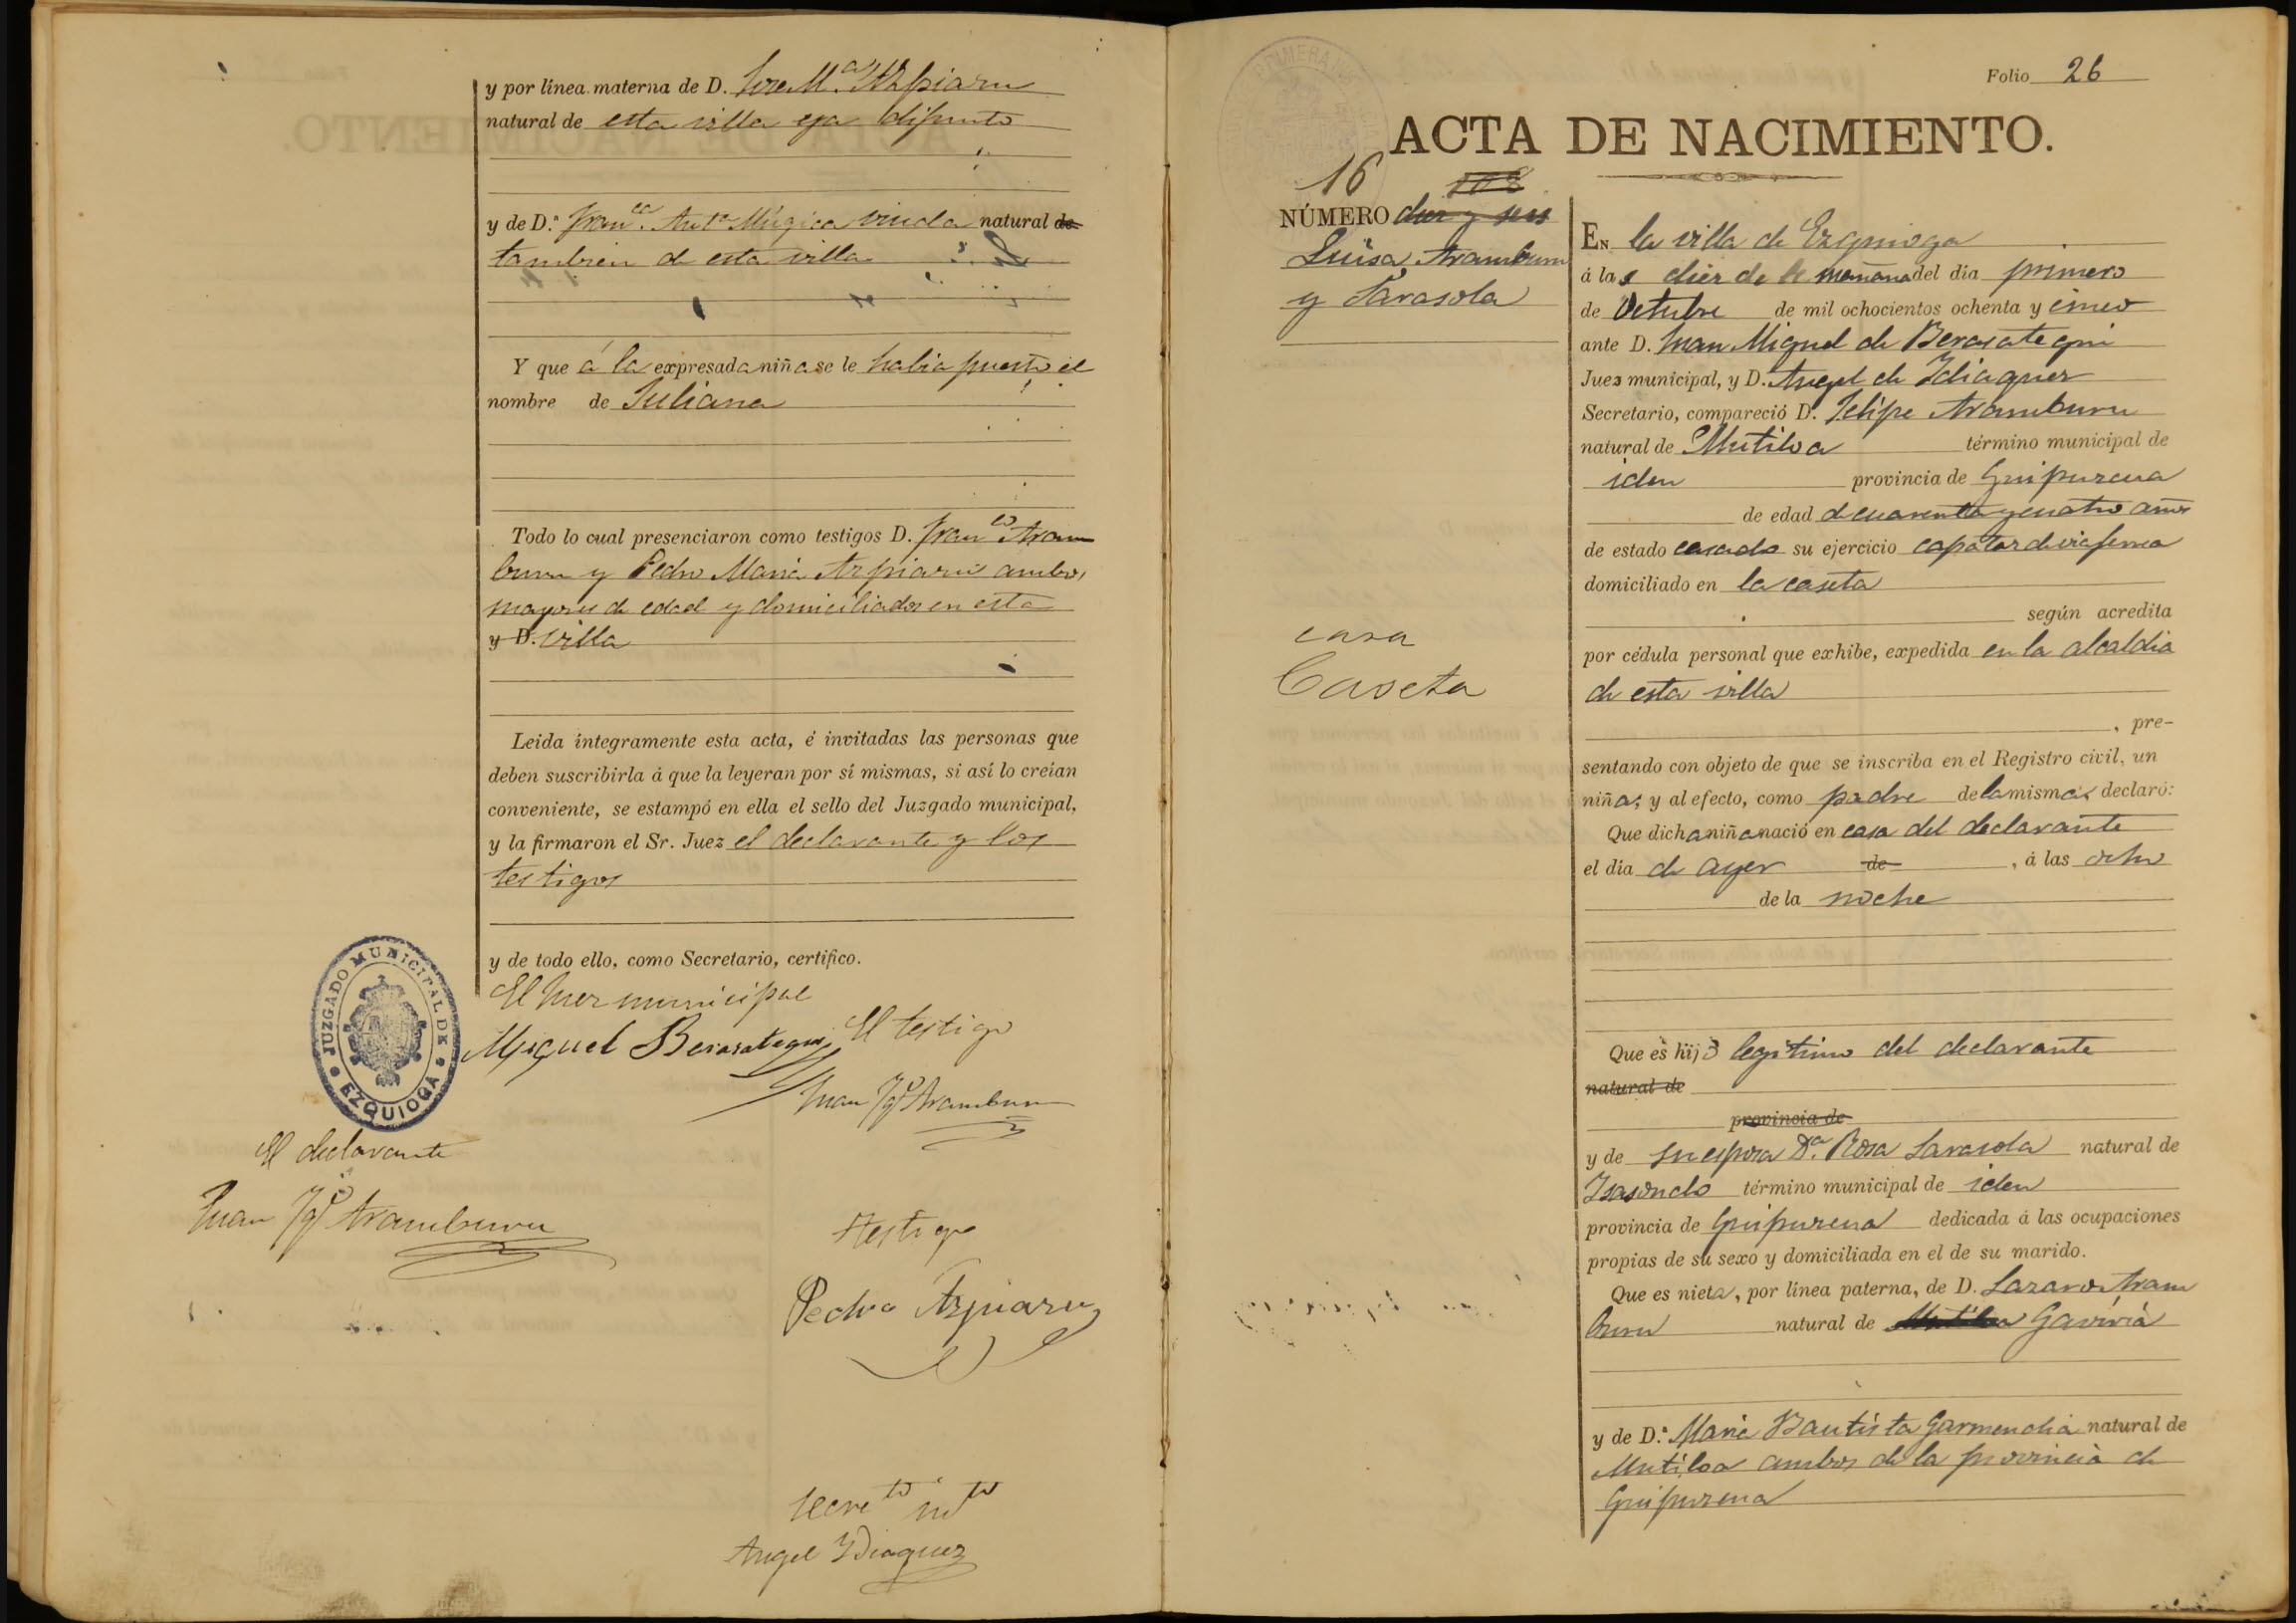 y por línea materna de D. José M.ª Azpiazu
natural de esta villa ya difunto
y de D.ª Fran.ca Ant.ª Múgica viuda natural de
tambien de esta villa
Y que á la expresada niña se le habia puesto el
nombre de Juliana
Todo lo cual presenciaron como testigos D. Fran.co Aram
buru y Pedro Maria Azpiazu ambos
mayores de edad y domiciliados en esta
y D. villa
Leida íntegramente esta acta, é invitadas las personas que
deben suscribirla á que la leyeran por sí mismas, si así lo creían
conveniente, se estampó en ella el sello del Juzgado municipal,
y la firmaron el Sr. Juez el declarante y los
testigos
y de todo ello, como Secretario, certifico.
El Juez municipal
Miguel Berasategui
El testigo
Juan Ig.º Aramburu
JUZGADO MUNICIPAL DE
EZQUIOGA
El declarante
Juan Ig.º Aramburu
Testigo
Pedro Azpiazu
Angel Ydiaquez
Folio 26
ACTA DE NACIMIENTO.
16
108
NÚMERO diez y seis
Luisa Aramburu
y Sarasola
casa
Caseta
EN la villa de Ezquioga
á las diez de la mañana del dia primero
de Octubre de mil ochocientos ochenta y cinco
ante D. Juan Miguel de Berasategui
Juez municipal, y D. Angel de Idiaquez
Secretario, compareció D. Felipe Aramburu
natural de Mutiloa término municipal de
iden provincia de Guipuzcua
de edad de cuarenta y cuatro años
de estado casado su ejercicio capataz de via ferrea
domiciliado en la caseta
según acredita
por cédula personal que exhibe, expedida en la alcaldia
de esta villa
, pre-
sentando con objeto de que se inscriba en el Registro civil, un
niña; y al efecto, como padre de la misma, declaró:
Que dicha niña nació en casa del declarante
el día de ayer de , á las ocho
de la noche
Que es hijo legitimo del declarante
natural de
provincia de
y de su esposa D.ª Rosa Sarasola natural de
Isasondo término municipal de iden
provincia de Guipuzcua dedicada á las ocupaciones
propias de su sexo y domiciliada en el de su marido.
Que es nieta, por línea paterna, de D. Lazaro Aram
buru natural de Mutiloa Gaviria
y de D.ª Maria Bautista Garmendia natural de
Mutiloa ambos de la provincia de
Guipuzcua